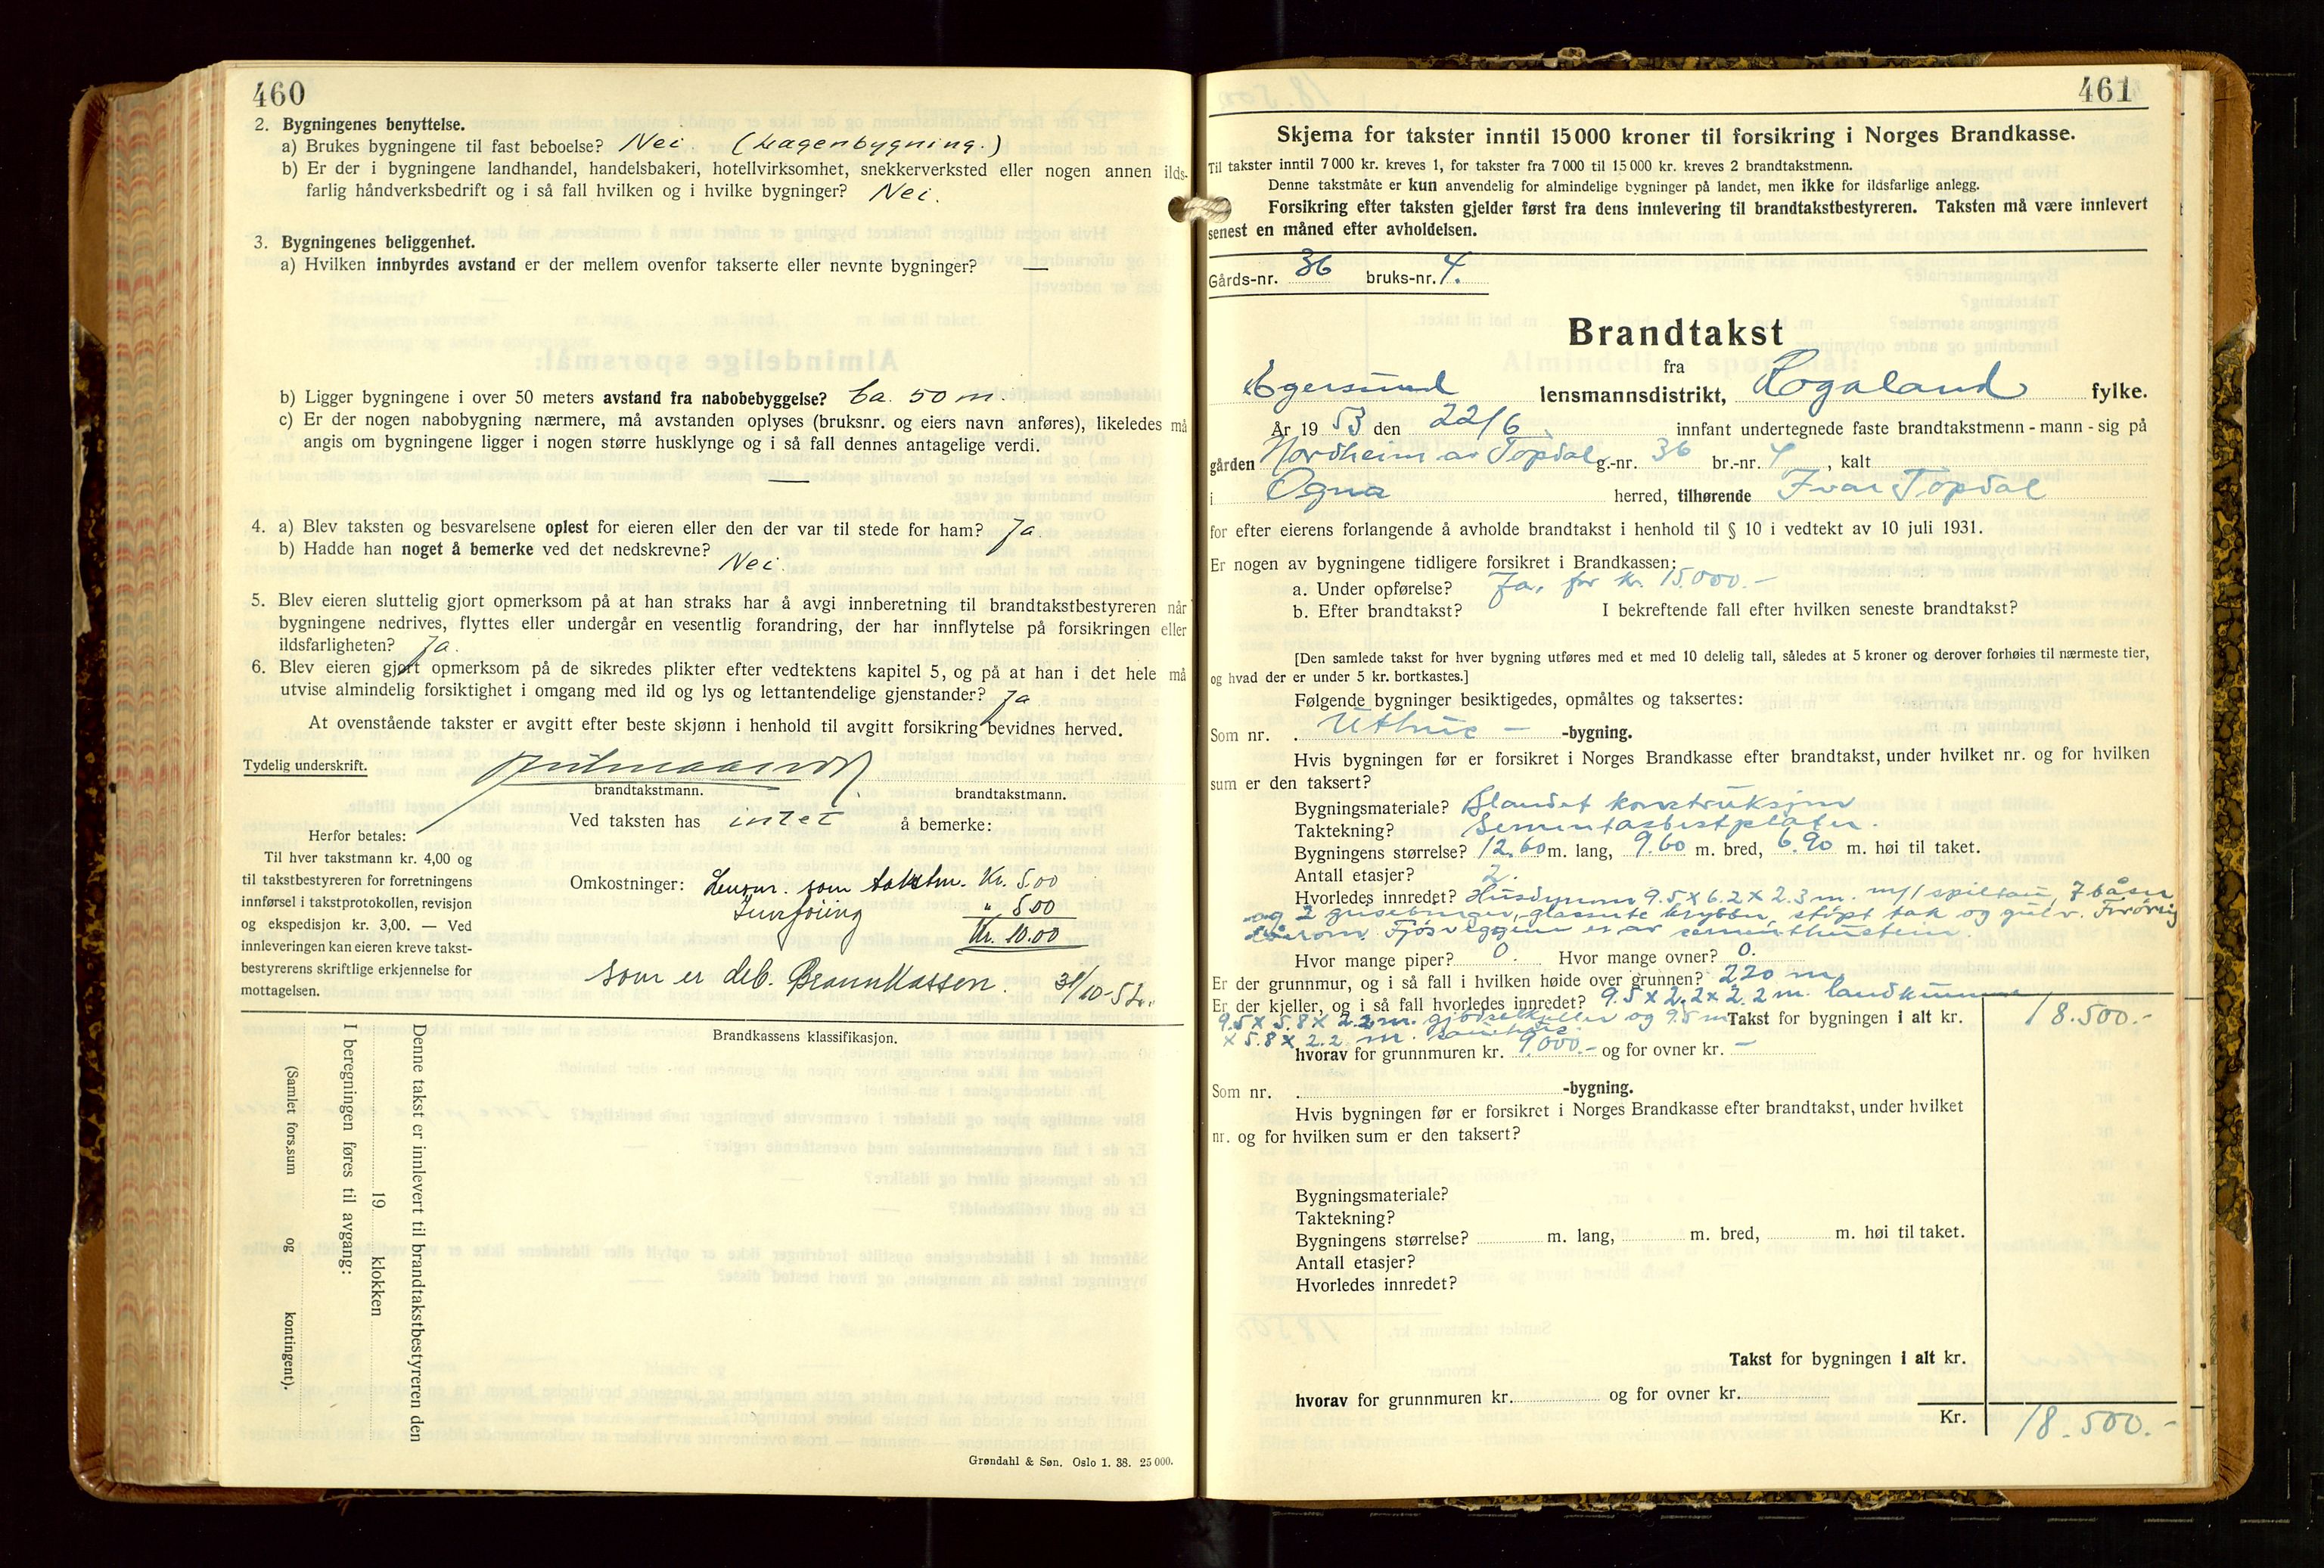 460
2. Bygningenes benyttelse.
a) Brukes bygningene til fast beboelse? Nei. (Lagerbygning.)
b) Er der i bygningene landhandel, handelsbakeri, hotellvirksomhet, snekkerverksted eller nogen annen ilds-
farlig håndverksbedrift og i så fall hvilken og i hvilke bygninger? Nei.
3. Bygningenes beliggenhet.
a) Hvilken innbyrdes avstand er der mellem ovenfor takserte eller nevnte bygninger? —
b) Ligger bygningene i over 50 meters avstand fra nabobebyggelse? Ca. 50 m.
c) Er der nogen nabobygning nærmere, må avstanden oplyses (bruksnr. og eiers navn anføres), likeledes må
angis om bygningene ligger i nogen større husklynge og i så fall dennes antagelige verdi.
—
4. a) Blev taksten og besvarelsene oplest for eieren eller den der var til stede for ham? Ja.
b) Hadde han noget å bemerke ved det nedskrevne? Nei.
5. Blev eieren sluttelig gjort opmerksom på at han straks har å avgi innberetning til brandtakstbestyreren når
bygningene nedrives, flyttes eller undergår en vesentlig forandring, der har innflytelse på forsikringen eller
ildsfarligheten? Ja.
6. Blev eieren gjort opmerksom på de sikredes plikter efter vedtektens kapitel 5, og på at han i det hele må
utvise almindelig forsiktighet i omgang med ild og lys og lettantendelige gjenstander? Ja
At ovenstående takster er avgitt efter beste skjønn i henhold til avgitt forsikring bevidnes herved.
Tydelig underskrift.
brandtakstmann. brandtakstmann.
Ved taksten has intet å bemerke:
Herfor betales:
Til hver takstmann kr. 4,00 og
til takstbestyreren for forretningens
innførsel i takstprotokollen, revisjon
og ekspedisjon kr. 3,00. — Ved
innleveringen kan eieren kreve takst-
bestyrerens skriftlige erkjennelse for
mottagelsen.
Omkostninger: Lensm. som takstm. Kr. 5.00
Innføring " 5.00
Kr. 10.00
som er deb. Brannkassen. 31/10-5
Brandkassens klassifikasjon.
Denne takst er innlevert til brandtakstbestyreren den
19 klokken
I beregningen føres til avgang:
(Samlet fors.sum og kontingent).
Grøndahl & Søn. Oslo 1. 38. 25 000.
461
Skjema for takster inntil 15000 kroner til forsikring i Norges Brandkasse.
Til takster inntil 7 000 kr. kreves 1, for takster fra 7 000 til 15 000 kr. kreves 2 brandtakstmenn.
Denne takstmåte er kun anvendelig for almindelige bygninger på landet, men ikke for ildsfarlige anlegg.
Forsikring efter taksten gjelder først fra dens innlevering til brandtakstbestyreren. Taksten må være innlevert
senest en måned efter avholdelsen.
Gårds-nr. 36 bruks-nr. 4.
Brandtakst
fra
Egersund lensmannsdistrikt, Rogaland fylke.
År 19 53 den 22/6 innfant undertegnede faste brandtakstmenn - mann - sig på
gården Nordheim av Topdal g.-nr. 36 br.-nr. 4, kalt
i Ogna herred, tilhørende Ivar Topdal
for efter eierens forlangende å avholde brandtakst i henhold til § 10 i vedtekt av 10 juli 1931.
Er nogen av bygningene tidligere forsikret i Brandkassen:
a. Under opførelse? Ja, for kr. 15.000.-
b. Efter brandtakst? I bekreftende fall efter hvilken seneste brandtakst?
[Den samlede takst for hver bygning utføres med et med 10 delelig tall, således at 5 kroner og derover forhøies til nærmeste tier,
og hvad der er under 5 kr. bortkastes.]
Følgende bygninger besiktigedes, opmåltes og taksertes:
Som nr. Uthus - -bygning.
Hvis bygningen før er forsikret i Norges Brandkasse efter brandtakst, under hvilket nr. og for hvilken
sum er den taksert?
Bygningsmateriale? Blandet konstruksjon
Taktekning? Sementasbestplater.
Bygningens størrelse? 12.60 m. lang, 9.60 m. bred, 6.90 m. høi til taket.
Antall etasjer? 2.
Hvorledes innredet? Husdyrrom 9.5 x 6.2 x 2.3 m. m/1 spiltau, 7 båser
og 2 grisebinger, glasserte krybber, støpt tak og gulv. Forøvrig
Fjøsveggene er av sementhulstein.
Hvor mange piper? 0. Hvor mange ovner? 0.
Er der grunnmur, og i så fall i hvilken høide over grunnen? 2.20 m.
Er der kjeller, og i så fall hvorledes innredet? 9.5 x 2.2 x 2.2 m. landkumme
9.5 x 5.8 x 2.2 m. gjødselkjeller og 9.5 m Takst for bygningen i alt kr. 18.500.-
x 5.8 x 2.2 m. sauehus.
hvorav for grunnmuren kr. 9000.- og for ovner kr. —
Som nr. -bygning.
Hvis bygningen før er forsikret i Norges Brandkasse efter brandtakst, under hvilket
nr. og for hvilken sum er den taksert?
Bygningsmateriale?
Taktekning?
Bygningens størrelse? m. lang, m. bred, m. høi til taket.
Antall etasjer?
Hvorledes innredet?
Takst for bygningen i alt kr.
hvorav for grunnmuren kr. og for ovner kr.
Kr. 18.500.-